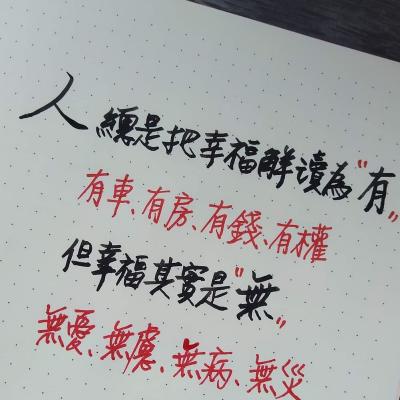 人總是把幸福解讀為"有"
有車、有房、有錢、有權
但幸福其實是"無"
無憂、無慮、無病、無災